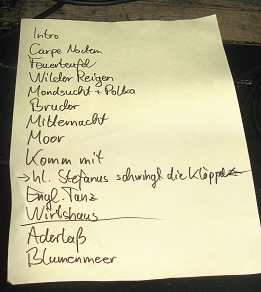 Intro
Carpe Noctem
Feuerteufel
Wilder Reigen
Mondsucht + Polka
Bruder
Mitternacht
Moor
Komm mit
→ hl. Stefanus schwingt die Klöppel
Engl. Tanz
Wirtshaus
Aderlaß
Blumenmeer